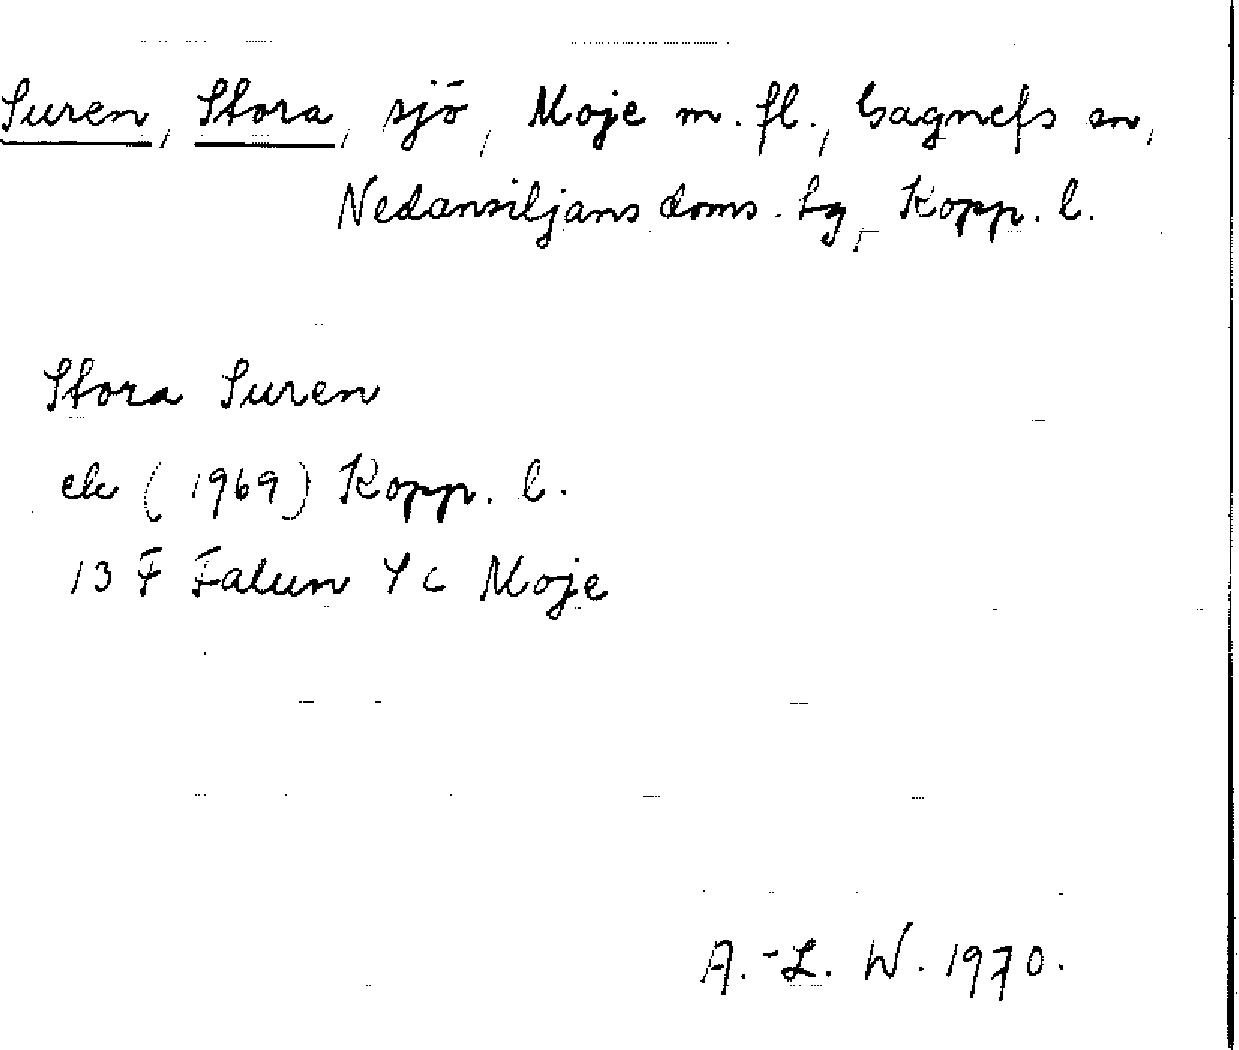 Suren, Stora, sjö, Moje m. fl., Gagnefs sn,
Nedansiljans doms. tg, Kopp. l.
Stora Suren
ek (1969) Kopp. l.
13 F Falun 4 c Moje
A.-L. W. 1970.